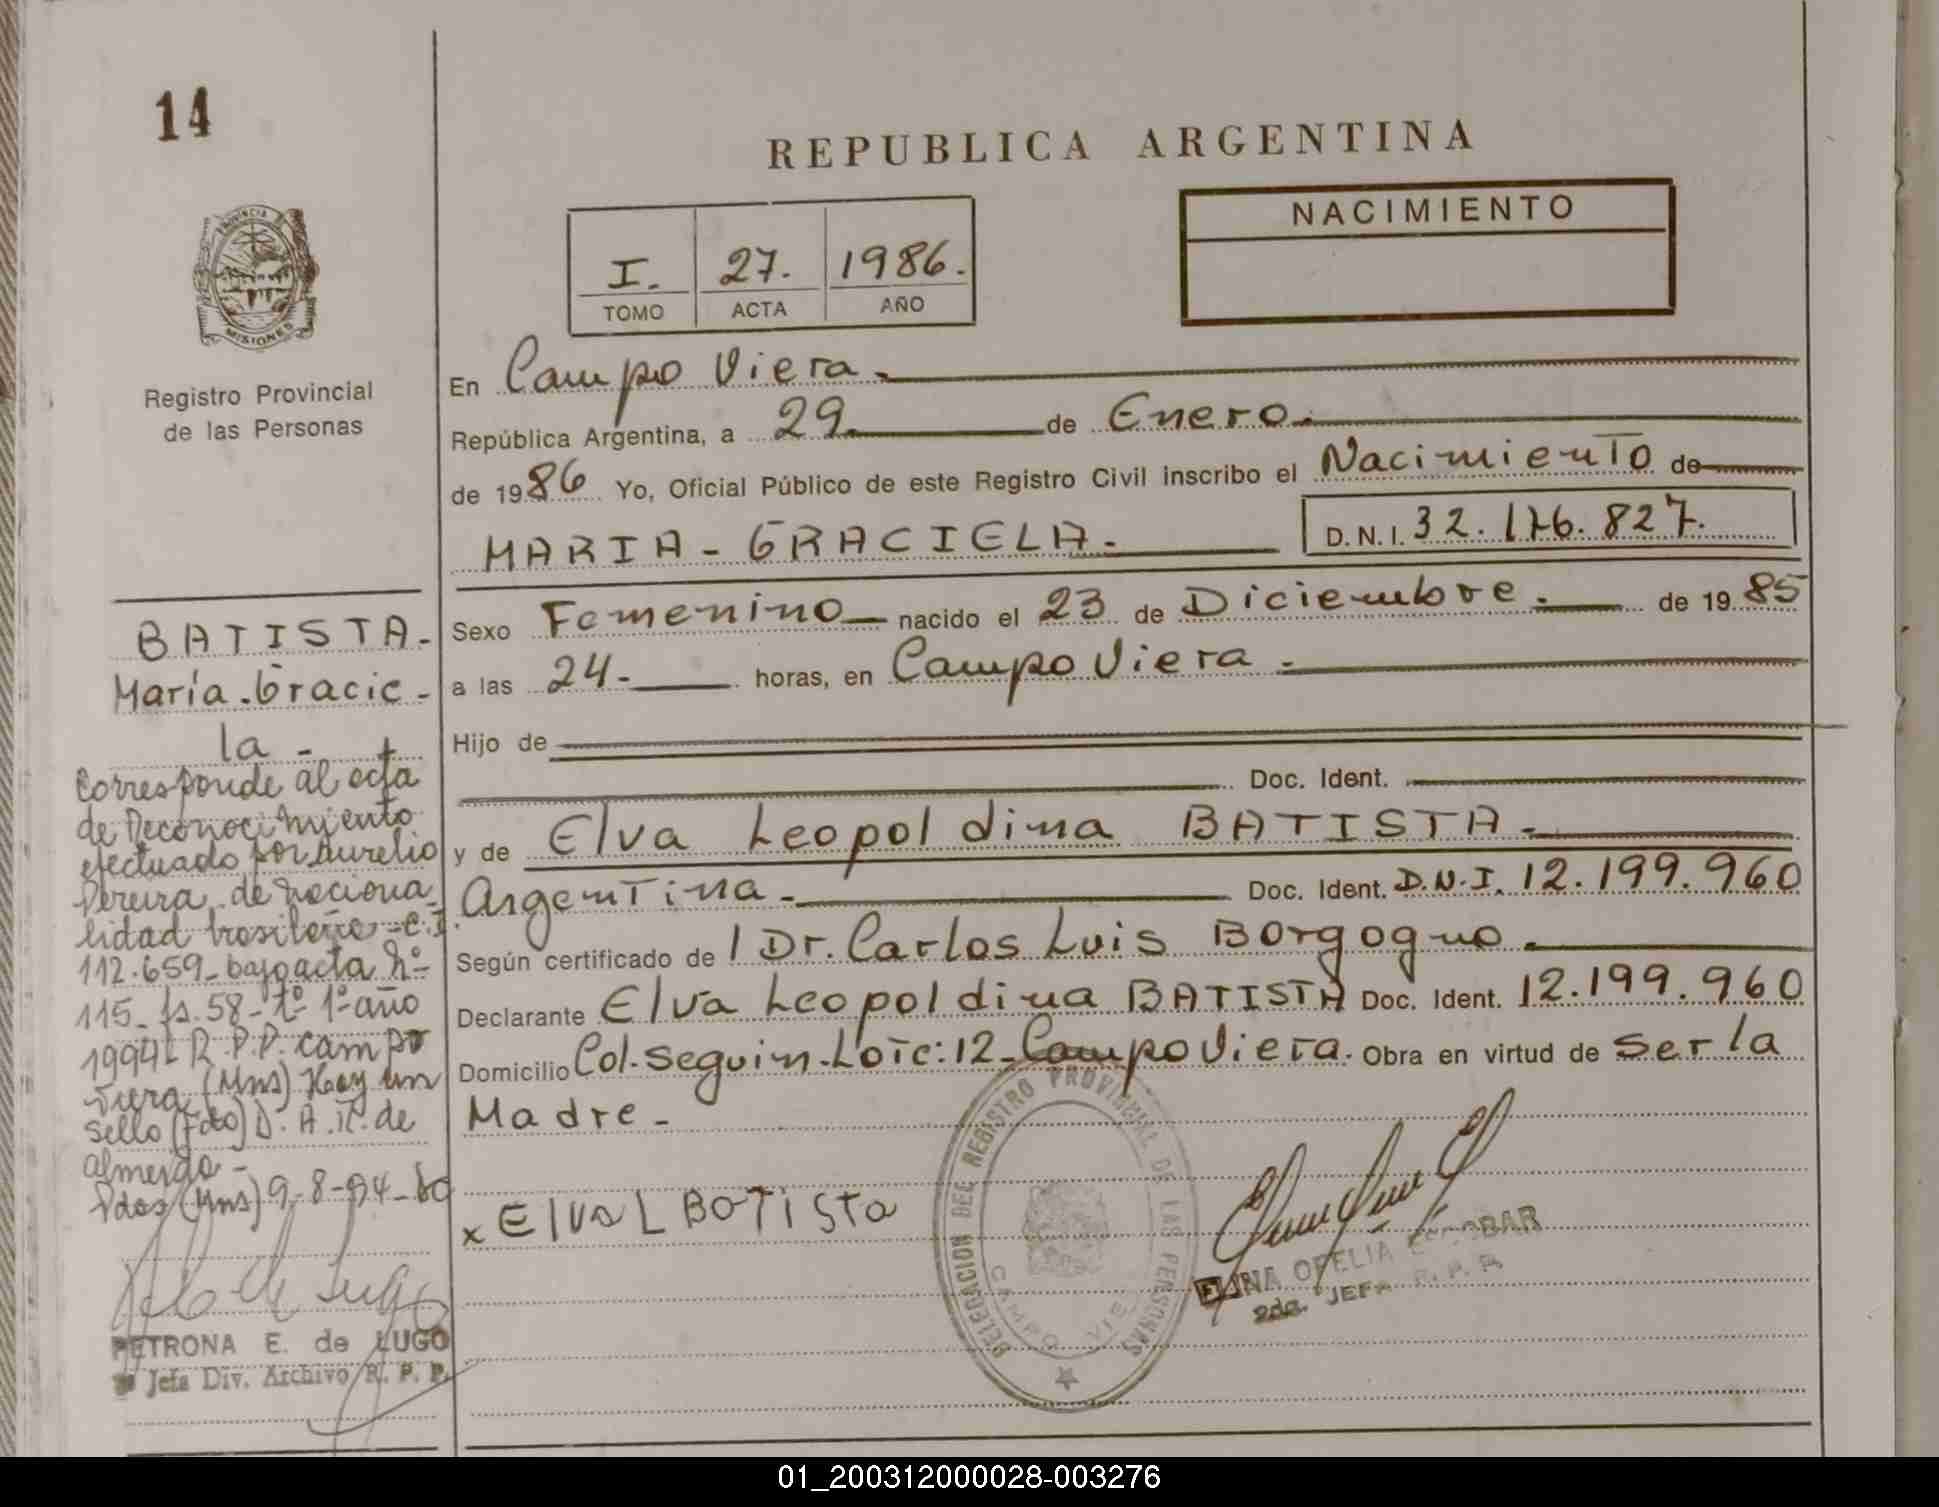 14
REPUBLICA ARGENTINA
PROVINCIA
MISIONES
Registro Provincial
de las Personas
I. 27. 1986.
TOMO ACTA AÑO
NACIMIENTO
En Campo Viera.
República Argentina, a 29. de Enero.
de 1986 Yo, Oficial Público de este Registro Civil inscribo el Nacimiento de
MARIA - GRACIELA. D.N.I. 32.176.827.
Sexo Femenino nacido el 23 de Diciembre. de 1985
a las 24. horas, en Campo Viera.
Hijo de
Doc. Ident.
y de Elva Leopoldina BATISTA.
Argentina. Doc. Ident. D.N.I. 12.199.960
Según certificado de / Dr. Carlos Luis Borgogno.
Declarante Elva Leopoldina BATISTA Doc. Ident. 12.199.960
Domicilio Col. Seguin. Lote: 12 - Campo Viera. Obra en virtud de ser la
Madre -
x Elva L BATISTA
BATISTA -
María Gracie -
la -
Corresponde al acta
de Reconocimiento
efectuado por Aurelio
Pereira de naciona
lidad brasileña - C.I.
112.659 - bajo acta Nº
115 - fs. 58 - tº 1º año
1994 - R.P.P. Campo
Viera (Mns) Hay un
sello (Fdo) D. A. R. de
Almeida -
Pdas (Mns) 9-8-94
PETRONA E. de LUGO
Jefa Div. Archivo R. P. P.
DELEGACION DEL REGISTRO PROVINCIAL DE LAS PERSONAS
CAMPO VIE
OFELIA ESCOBAR
2da. JEFA R. P. P.
01_200312000028-003276